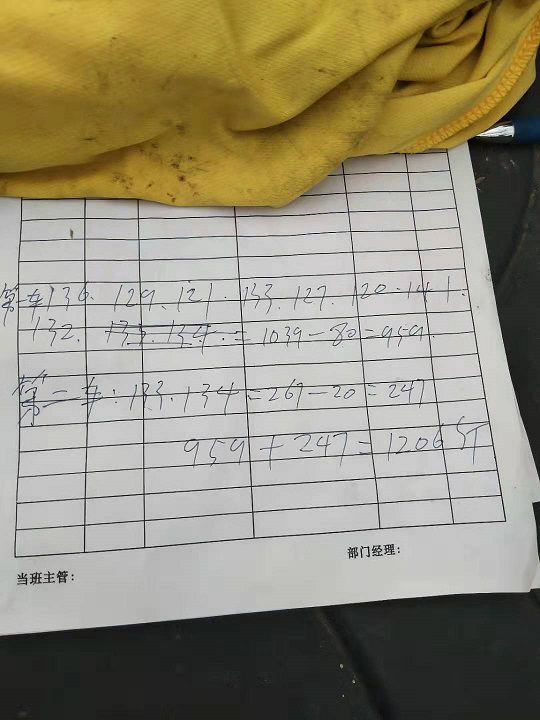 第一车136. 129. 121. 133. 127. 120. 141.
132. 133. 134. = 1039-80=959.
第二车: 133. 134=267-20=247
959+247=1206斤
部门经理:
当班主管: